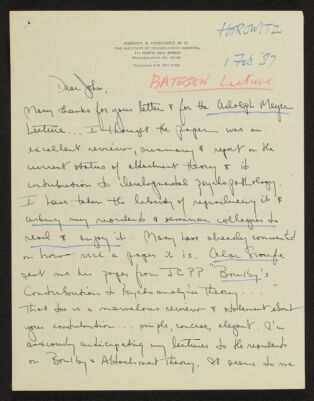 HOROWITZ
HARVEY A. HOROWITZ, M. D.
THE INSTITUTE OF PENNSYLVANIA HOSPITAL
111 NORTH 49TH STREET
PHILADELPHIA, PA 19139
1 Feb '87
BATESON Lecture
Dear John,
Many thanks for your letter & for the Adolph Meyer
Lecture... I thought the paper was an
excellent review, summary & report on the
current status of attachment theory & its
contribution to developmental psychopathology.
I have taken the liberty of reproducing it &
asking my residents & seminar colleagues to
read & enjoy it. Many have already commented
on how rich a paper it is. Alan Sroufe
sent me his paper from JCPP "Bowlby's
Contribution to Psychoanalytic Theory...."
That too is a marvelous review & statement about
your contribution... simple, concise, elegant. I'm
anxiously anticipating my lectures to the residents
on Bowlby & Attachment Theory. It seems to me